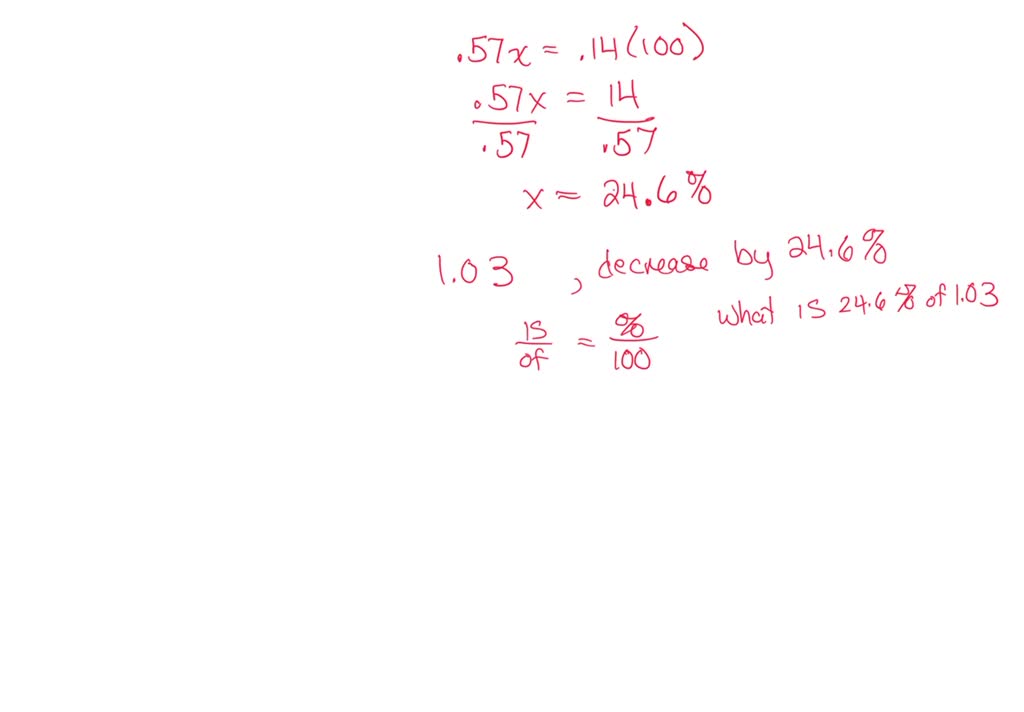 .57x = .14(100)
.57x = 14
.57 .57
x = 24.6%
1.03 , decrease by 24.6%
what is 24.6% of 1.03
is = %
of 100